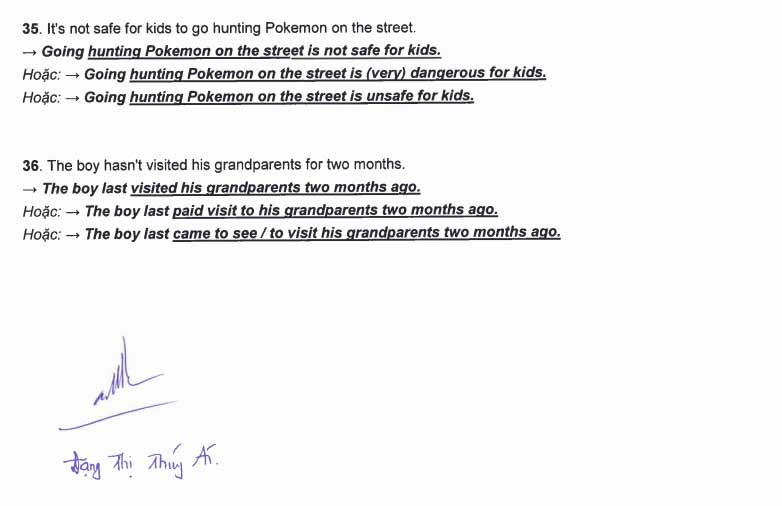 35. It's not safe for kids to go hunting Pokemon on the street.
→ Going hunting Pokemon on the street is not safe for kids.
Hoặc: → Going hunting Pokemon on the street is (very) dangerous for kids.
Hoặc: → Going hunting Pokemon on the street is unsafe for kids.
36. The boy hasn't visited his grandparents for two months.
→ The boy last visited his grandparents two months ago.
Hoặc: → The boy last paid visit to his grandparents two months ago.
Hoặc: → The boy last came to see / to visit his grandparents two months ago.
Đặng Thị Thúy Ái.